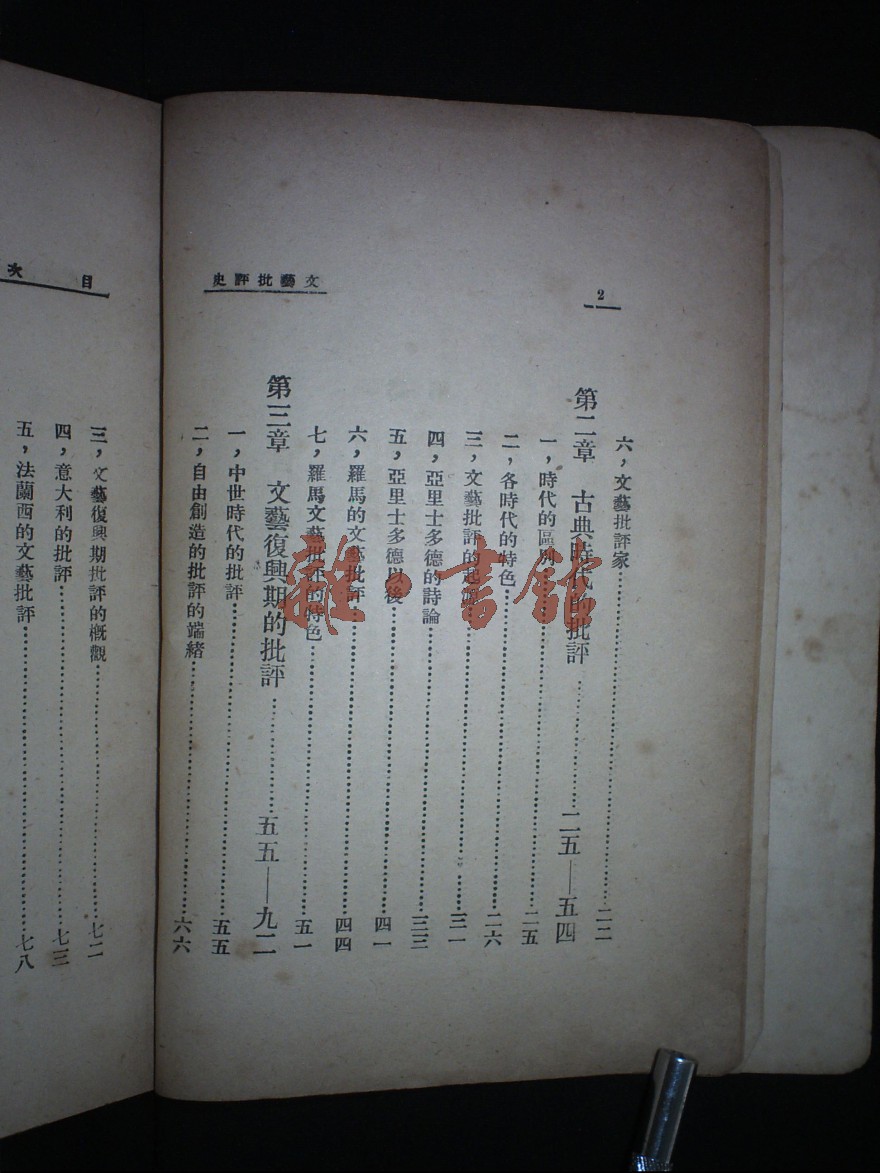 2
文藝批評史
六，文藝批評家……二二
第二章　古典時代的批評……二五—五四
一，時代的區別……二五
二，各時代的特色……二六
三，文藝批評的起……三一
四，亞里士多德的詩論……三三
五，亞里士多德以後……四一
六，羅馬的文藝批評……四四
七，羅馬文藝批評的特色……五一
第三章　文藝復興期的批評……五五—九二
一，中世時代的批評……五五
二，自由創造的批評的端緒……六六
目次
三，文藝復興期批評的概觀……七二
四，意大利的批評……七三
五，法蘭西的文藝批評……七八
書館